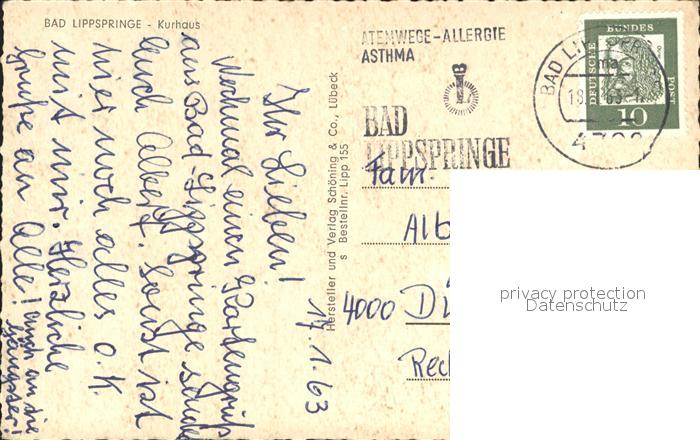 BAD LIPPSPRINGE - Kurhaus
17.1.63
Ihr Lieben!
Nochmal einen Kartengruß
aus Bad-Lippspringe
Euch Albert. Sonst ist
hier noch alles o. K.
mit mir. Herzliche
Grüße an Alle!
auch an die
Hersteller und Verlag Schöning & Co., Lübeck
s Bestellnr. Lipp 155
ATEMWEGE-ALLERGIE
ASTHMA
BAD
LIPPSPRINGE
BAD LIPPSPRINGE
18.
DEUTSCHE
BUNDES
POST
10
Fam
Alb
4000 Dü
Rec
privacy protection
Datenschutz